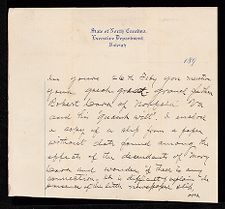 State of North Carolina,
Executive Department,
Raleigh
189
In yours 26th Feby you mention
your great great grand father
Robert Lenoir of Norfolk Va
and his "Queensware". I enclose
a copy of a slip from a paper
without date found among the
effects of the descendants of Mary
and wonder if there is any
connection. It is difficult explain the
presence of the little newspaper slip,